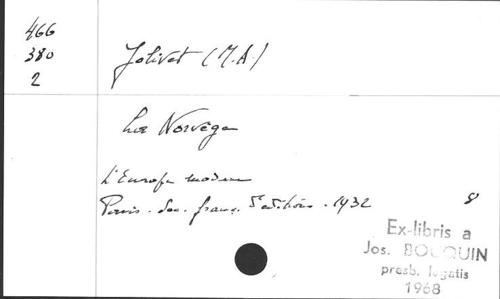 466
380
2
Jolivet (M.A.)
La Norvège
L'Europe moderne
Paris. Soc. franç. d'editions. 1932
8
Ex-libris a
Jos. BOUQUIN
presb. legatis
1968